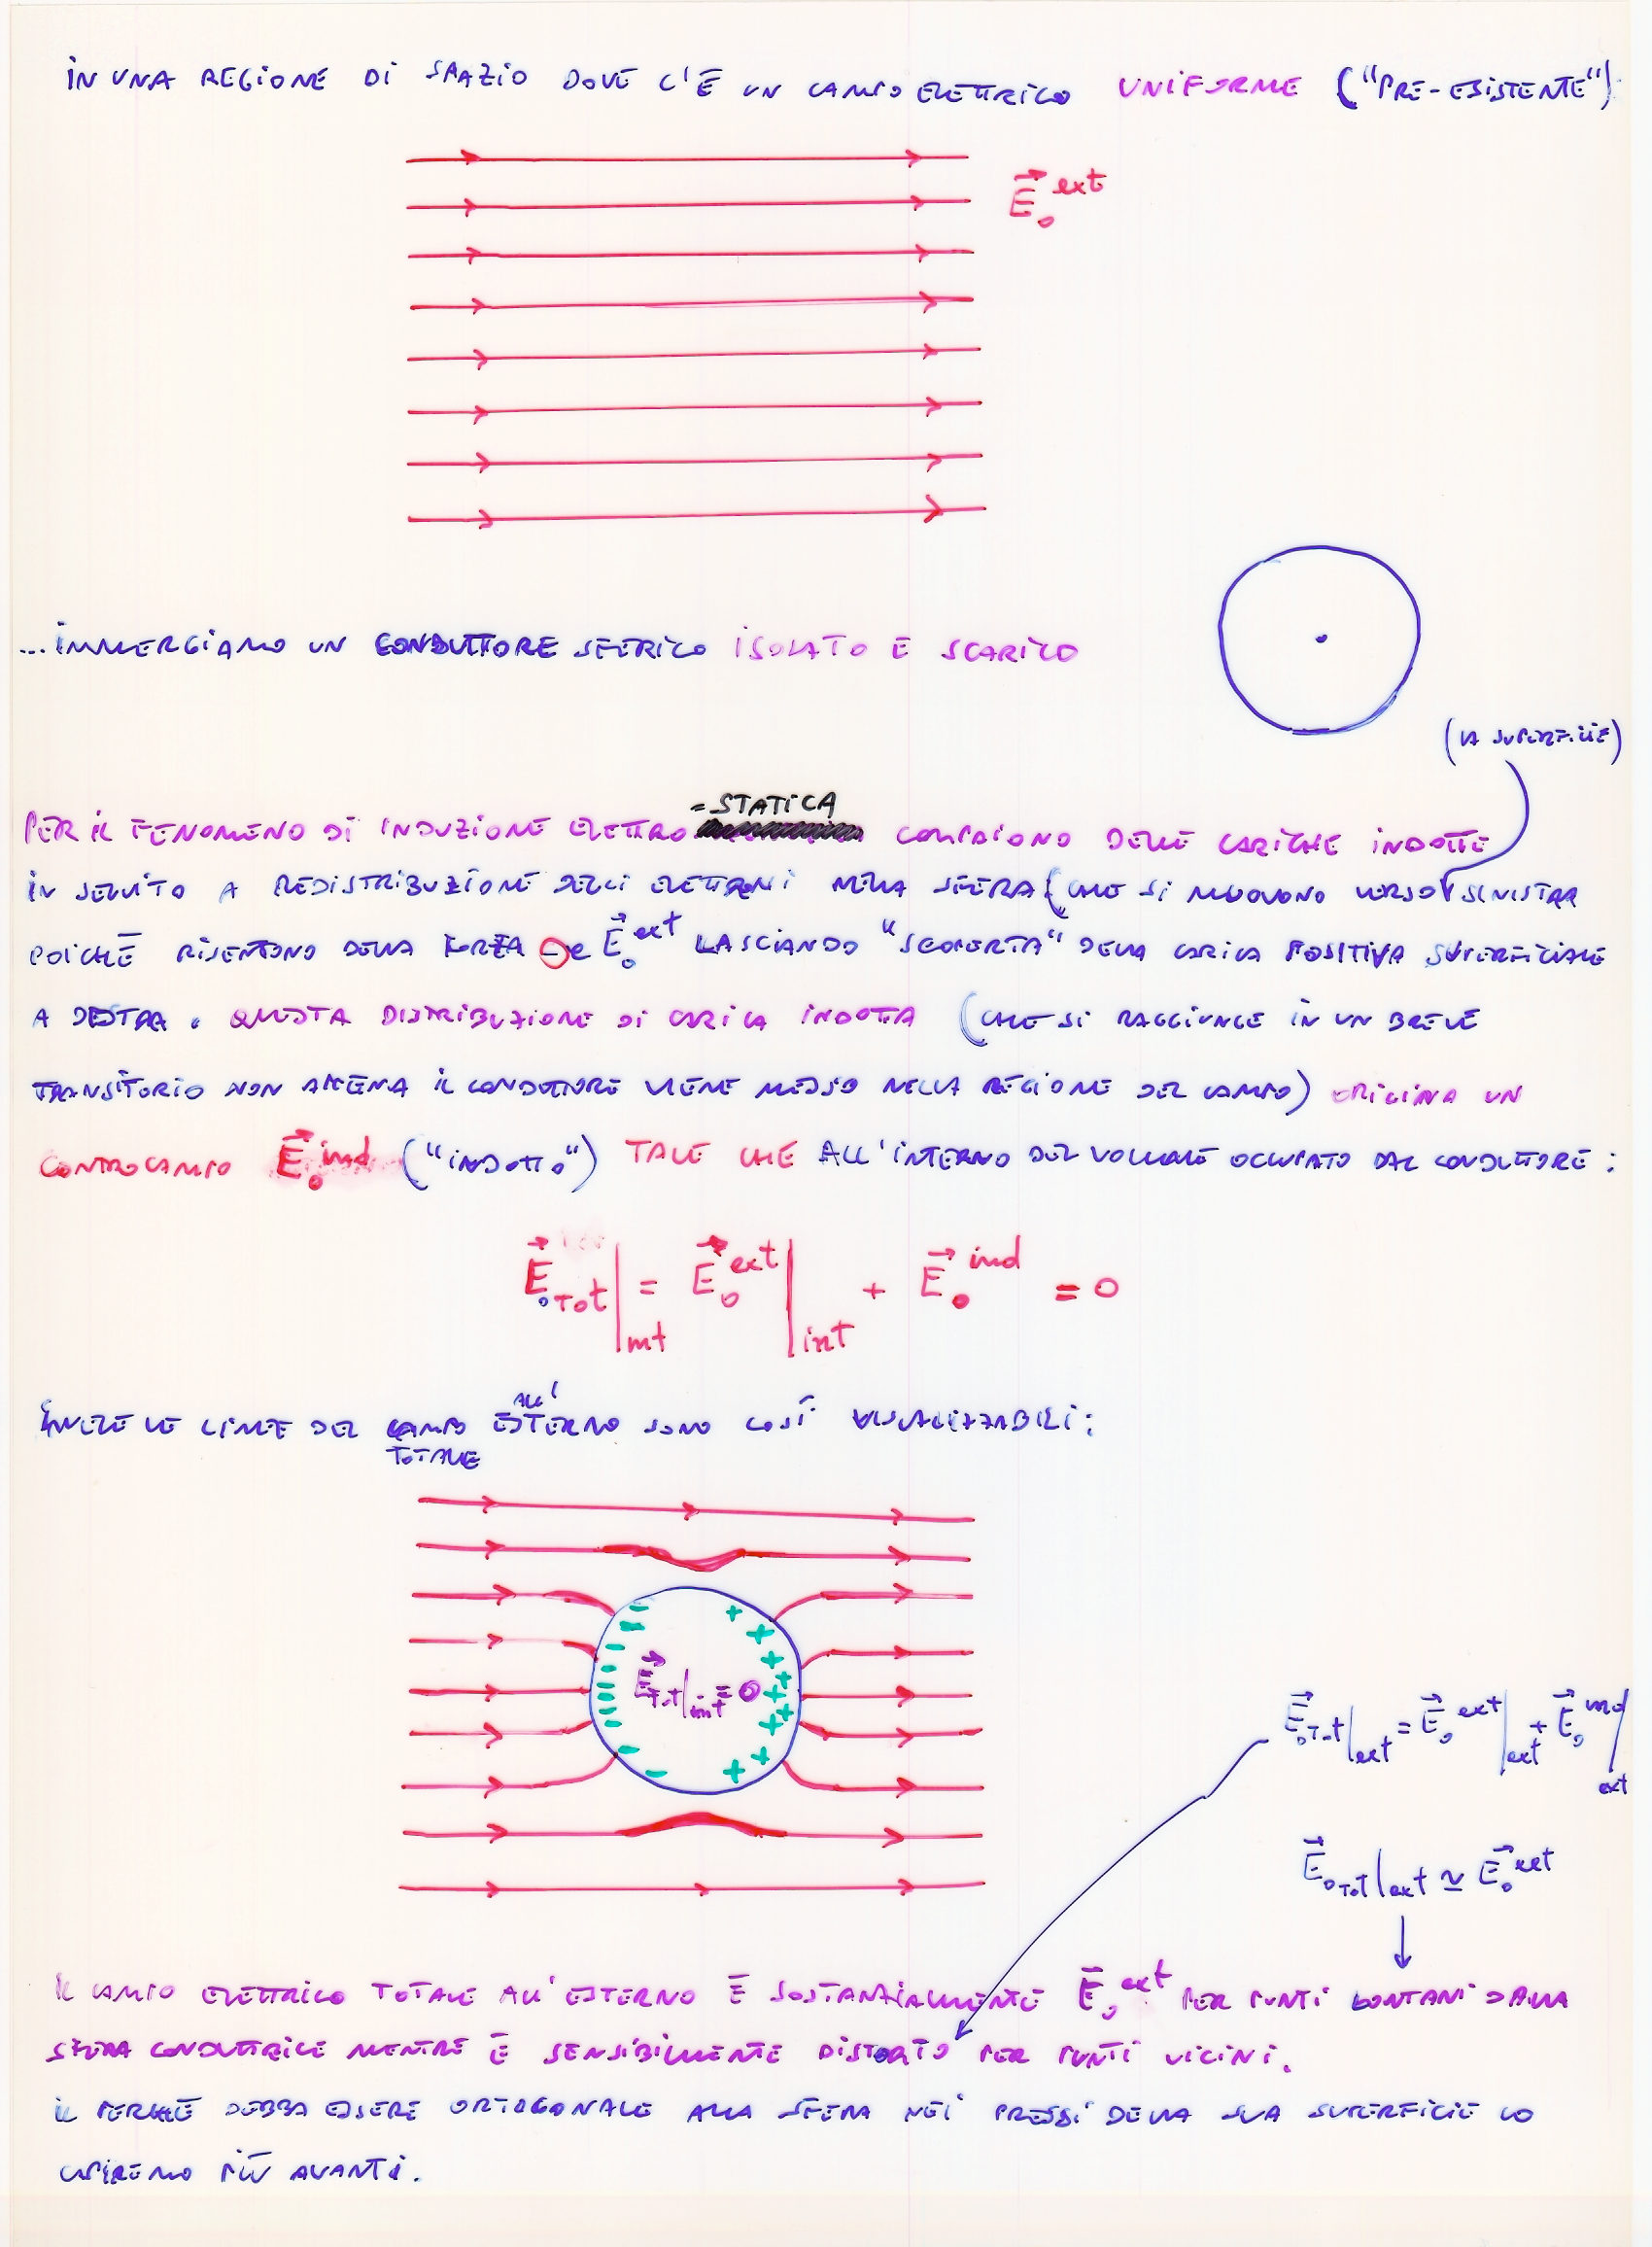 IN UNA REGIONE DI SPAZIO DOVE C'È UN CAMPO ELETTRICO UNIFORME ("PRE-ESISTENTE"):
E₀ ext
...IMMERGIAMO UN CONDUTTORE SFERICO ISOLATO E SCARICO
(LA SUPERFICIE)
=STATICA
PER IL FENOMENO DI INDUZIONE ELETTRO COMPAIONO DELLE CARICHE INDOTTE
IN SEGUITO A REDISTRIBUZIONE DEGLI ELETTRONI NELLA SFERA (CHE SI MUOVONO VERSO SINISTRA
POICHÉ RISENTONO DELLA FORZA -e E₀ ext LASCIANDO "SCOPERTA" DELLA CARICA POSITIVA SUPERFICIALE
A DESTRA. QUESTA DISTRIBUZIONE DI CARICA INDOTTA (CHE SI RAGGIUNGE IN UN BREVE
TRANSITORIO NON APPENA IL CONDUTTORE VIENE MESSO NELLA REGIONE DEL CAMPO) ORIGINA UN
CONTROCAMPO E₀ ind ("INDOTTO") TALE CHE ALL'INTERNO DEL VOLUME OCCUPATO DAL CONDUTTORE:
E₀Tot|int = E₀ ext|int + E₀ ind = 0
INVECE LE LINEE DEL CAMPO TOTALE ALL'ESTERNO SONO COSÌ VISUALIZZABILI:
ETot|int = 0
E₀Tot|ext = E₀ ext|ext + E₀ ind|ext
E₀Tot|ext ≃ E₀ ext
IL CAMPO ELETTRICO TOTALE ALL'ESTERNO È SOSTANZIALMENTE E₀ ext PER PUNTI LONTANI DALLA
SFERA CONDUTTRICE MENTRE È SENSIBILMENTE DISTORTO PER PUNTI VICINI.
IL PERCHÉ DEBBA ESSERE ORTOGONALE ALLA SFERA NEI PRESSI DELLA SUA SUPERFICIE LO
CAPIREMO PIÙ AVANTI.